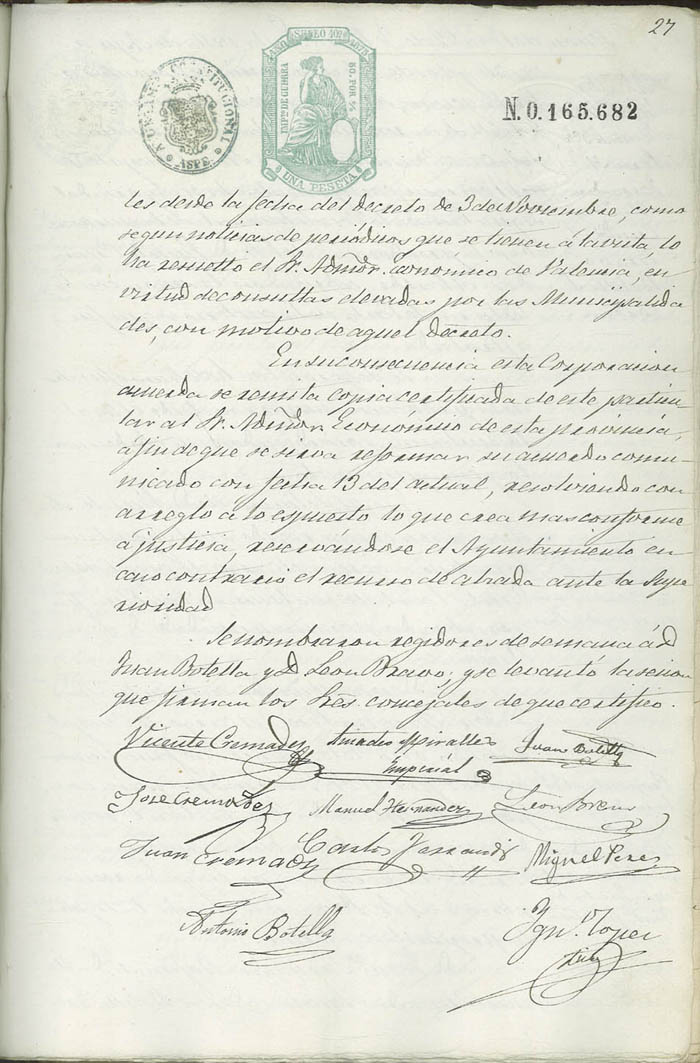 27
AYUNTAMIENTO CONSTITUCIONAL
ASPE
AÑO SELLO 10º 1875
IMPTO DE GUERRA
50 POR %
UNA PESETA
N.0.165.682
les desde la fecha del decreto de 3 de Noviembre, como
segun noticias de periódicos que se tienen á la vista, lo
ha resuelto el Sr. Admor. Económico de Valencia, en
virtud de consultas elevadas por las Municipalida
des, con motivo de aquel decreto.
En su consecuencia esta Corporacion
acuerda se remita copia certificada de este particu
lar al Sr. Admor Económico de esta provincia,
á fin de que se sirva reformar su acuerdo comu
nicado con fecha 13 del actual, resolviendo con
arreglo á lo espuesto lo que crea mas conforme
á justicia, reservándose el Ayuntamiento en
caso contrario el recurso de alzada ante la Supe
rioridad
Se nombraron regidores de semana á D
Juan Botella y D Leon Bravo; y se levantó la sesion
que firman los Sres. concejales de que certifico.
Vicente Cremades Amadeo Miralles Juan Botella
Imperial
Jose Cremades Manuel Hernandez Leon Bravo
Juan Cremades Carlos Miguel Perez
Antonio Botella Ign.º Lopez